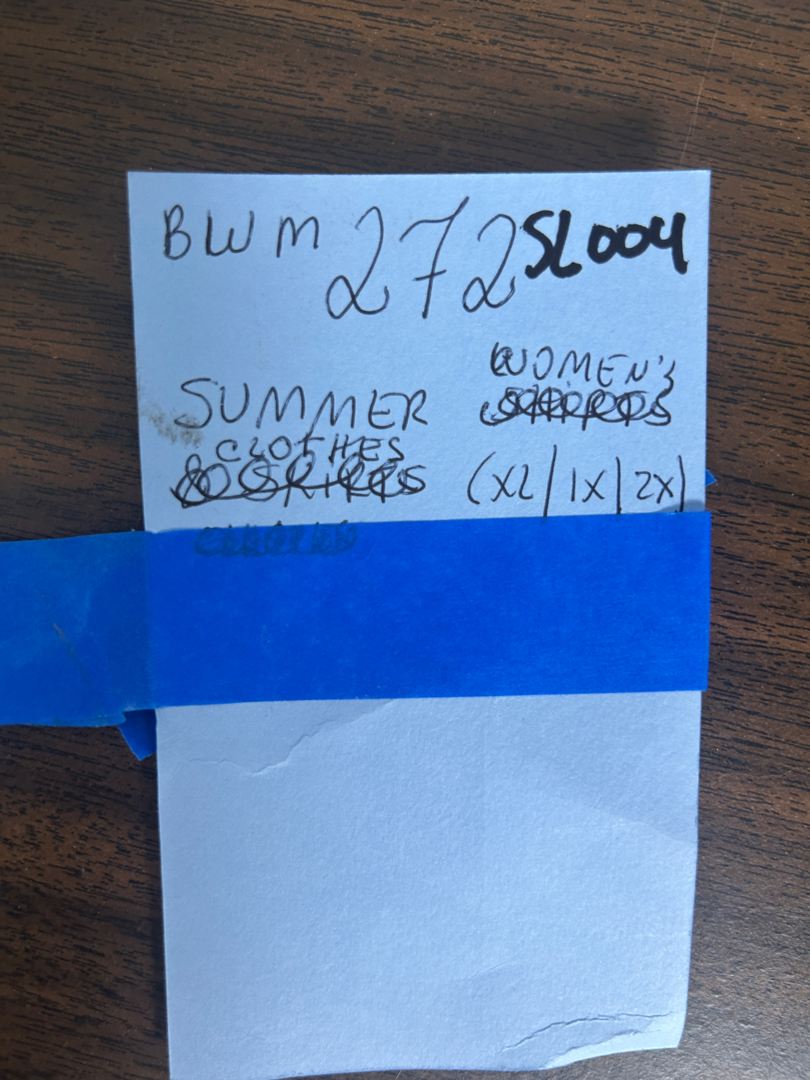 BWM 272 SL004
SUMMER WOMEN'S
CLOTHES (XL/1X/2X)